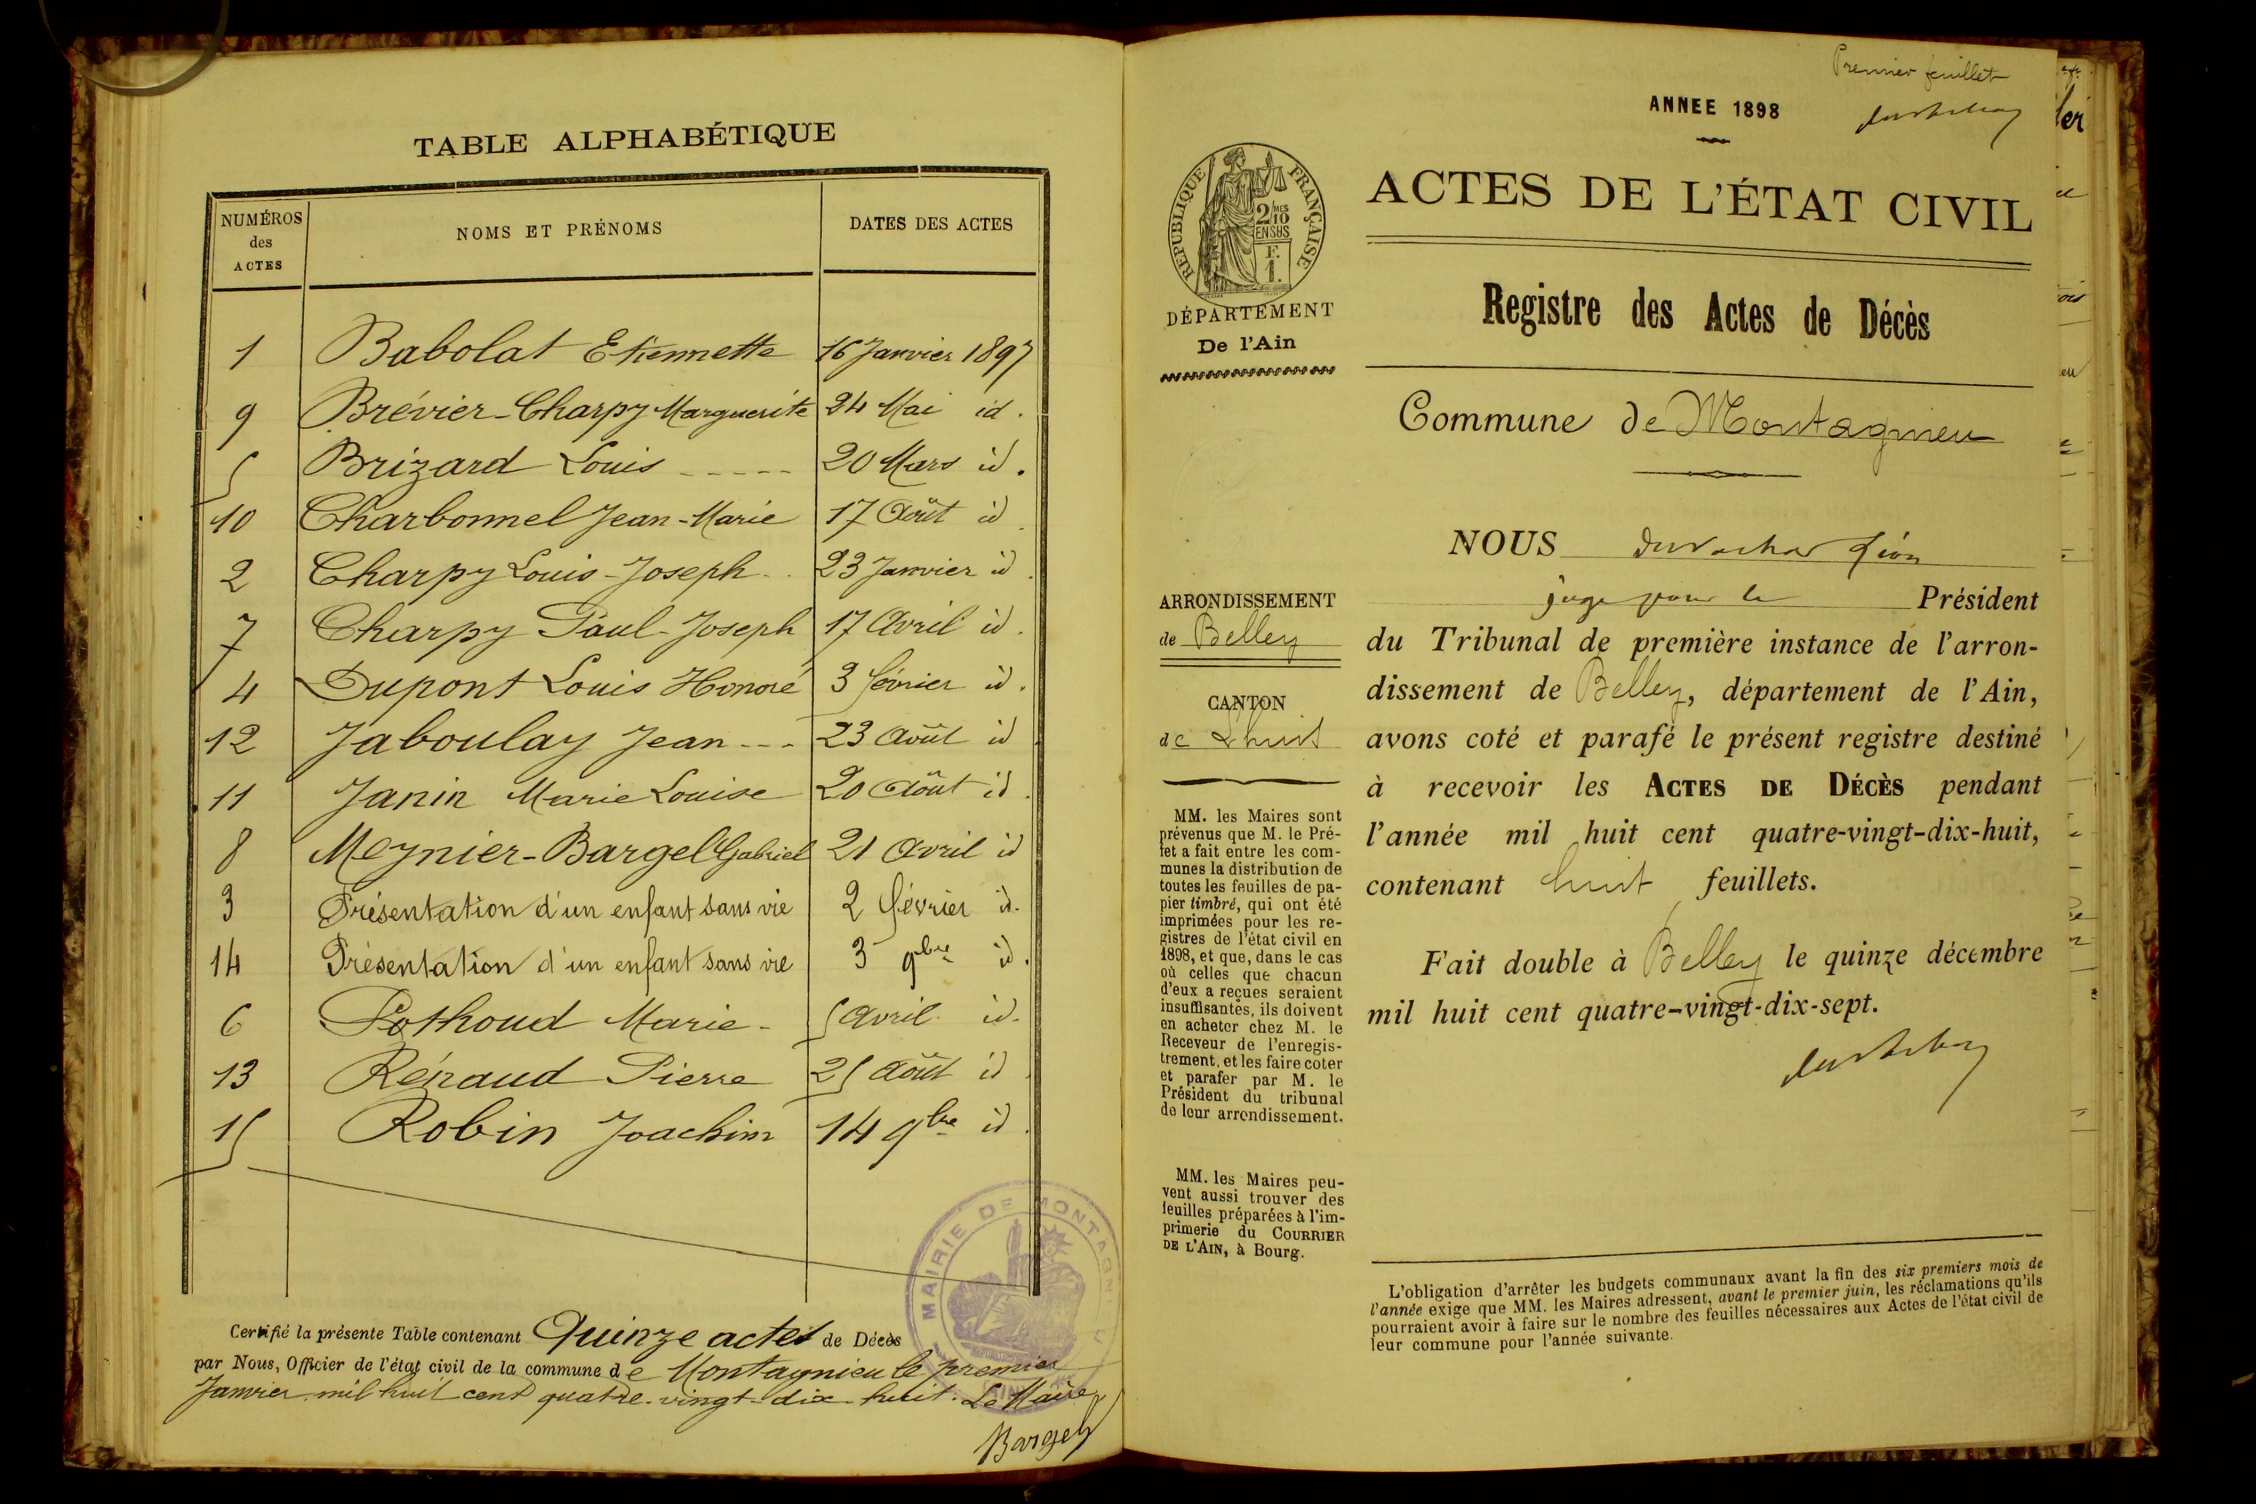 TABLE ALPHABÉTIQUE
NUMÉROS des ACTES NOMS ET PRÉNOMS DATES DES ACTES
1 Babolat Etiennette 16 Janvier 1897
9 Brévier-Charpy Marguerite 24 Mai id.
5 Brizard Louis 20 Mars id.
10 Charbonnel Jean-Marie 17 Août id
2 Charpy Louis-Joseph 23 Janvier id
7 Charpy Paul-Joseph 17 Avril id.
4 Dupont Louis Honoré 3 février id.
12 Jaboulay Jean 23 Août id
11 Janin Marie Louise 20 Août id
8 Meynier-Bargel Gabriel 21 Avril id
3 Présentation d'un enfant sans vie 2 février id.
14 Présentation d'un enfant sans vie 3 9bre id.
6 Pothoud Marie 5 Avril id.
13 Rénaud Pierre 25 Août id
15 Robin Joachim 14 9bre id.
MAIRIE DE MONTAGNIEU
Certifié la présente Table contenant Quinze actes de Décès
par Nous, Officier de l'état civil de la commune de Montagnieu le premier
Janvier mil huit cent quatre-vingt-dix-huit. Le Maire,
Bargel
Premier feuillet
ANNEE 1898
RÉPUBLIQUE FRANÇAISE
2/10 MES
EN SUS
F.
1.
DÉPARTEMENT
De l'Ain
ARRONDISSEMENT
de Belley
CANTON
de Lhuis
MM. les Maires sont
prévenus que M. le Pré-
fet a fait entre les com-
munes la distribution de
toutes les feuilles de pa-
pier timbré, qui ont été
imprimées pour les re-
gistres de l'état civil en
1898, et que, dans le cas
où celles que chacun
d'eux a reçues seraient
insuffisantes, ils doivent
en acheter chez M. le
Receveur de l'enregis-
trement, et les faire coter
et parafer par M. le
Président du tribunal
de leur arrondissement.
MM. les Maires peu-
vent aussi trouver des
feuilles préparées à l'im-
primerie du COURRIER
DE L'AIN, à Bourg.
ACTES DE L'ÉTAT CIVIL
Registre des Actes de Décès
Commune de Montagnieu
NOUS Léon
juge pour le Président
du Tribunal de première instance de l'arron-
dissement de Belley, département de l'Ain,
avons coté et parafé le présent registre destiné
à recevoir les ACTES DE DÉCÈS pendant
l'année mil huit cent quatre-vingt-dix-huit,
contenant huit feuillets.
Fait double à Belley le quinze décembre
mil huit cent quatre-vingt-dix-sept.
L'obligation d'arrêter les budgets communaux avant la fin des six premiers mois de
l'année exige que MM. les Maires adressent, avant le premier juin, les réclamations qu'ils
pourraient avoir à faire sur le nombre des feuilles nécessaires aux Actes de l'état civil de
leur commune pour l'année suivante.